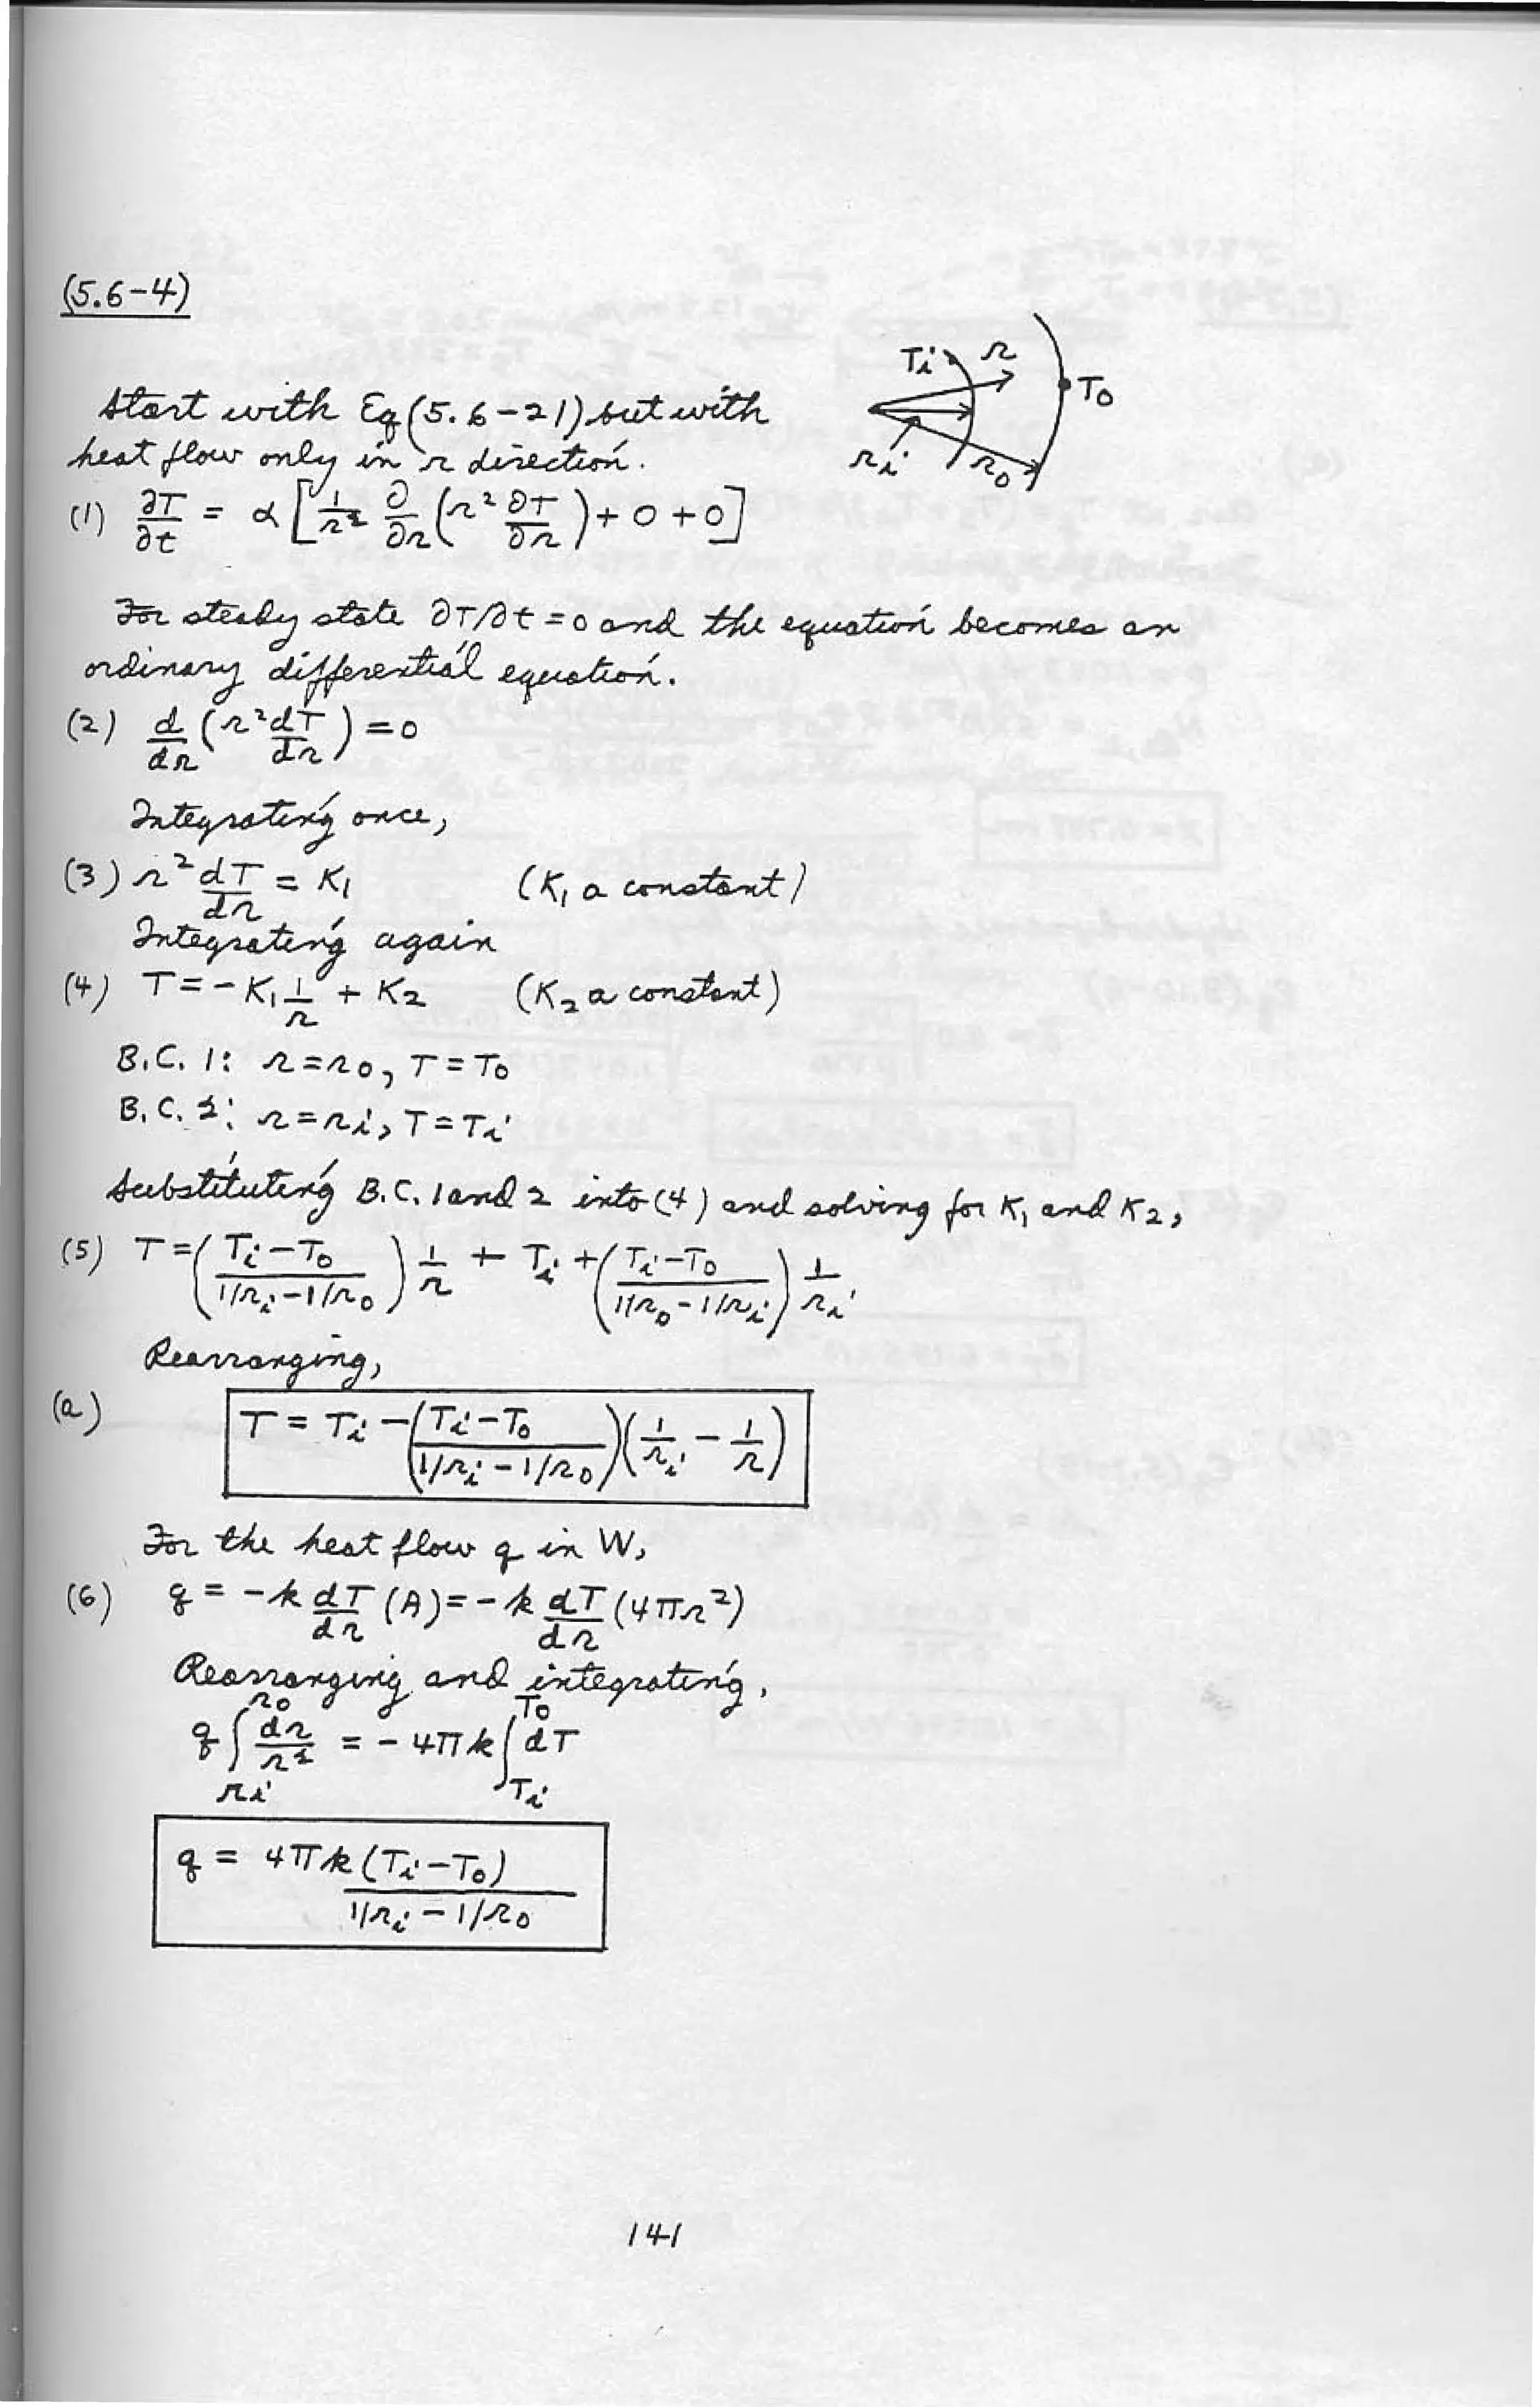 (5.6-4)
Ti r
To
ri ro
Start with Eq (5.6-21) but with
heat flow only in r direction.
(1) ∂T/∂t = α [1/r² ∂/∂r (r² ∂T/∂r) + 0 + 0]
For steady state ∂T/∂t = 0 and the equation becomes an
ordinary differential equation.
(2) d/dr (r² dT/dr) = 0
Integrating once,
(3) r² dT/dr = K₁ (K₁ a constant)
Integrating again
(4) T = - K₁ 1/r + K₂ (K₂ a constant)
B.C. 1: r = ro, T = To
B.C. 2: r = ri, T = Ti
Substituting B.C. 1 and 2 into (4) and solving for K₁ and K₂,
(5) T = ((Ti - To)/(1/ri - 1/ro)) 1/r + Ti + ((Ti - To)/(1/ro - 1/ri)) 1/ri
Rearranging,
(a) T = Ti - ((Ti - To)/(1/ri - 1/ro)) (1/ri - 1/r)
For the heat flow q in W,
(6) q = - k dT/dr (A) = - k dT/dr (4πr²)
Rearranging and integrating,
q ∫ri^ro dr/r² = - 4πk ∫Ti^To dT
q = 4πk (Ti - To)/(1/ri - 1/ro)
141